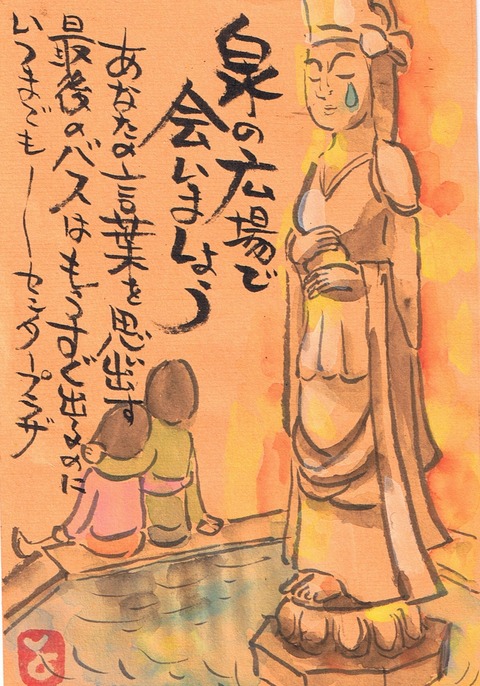 泉の広場で
会いましょう
あなたの言葉を思い出す
最後のバスはもうすぐ出るのに
いつまでも――センタープラザ